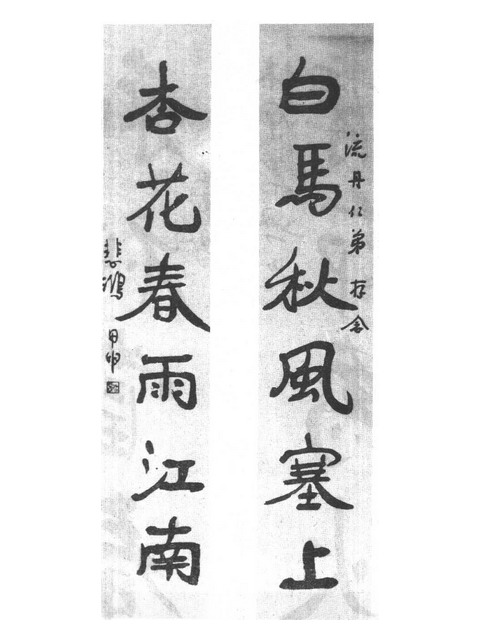 流丹仁弟存念
白馬秋風塞上
杏花春雨江南
悲鴻 甲申